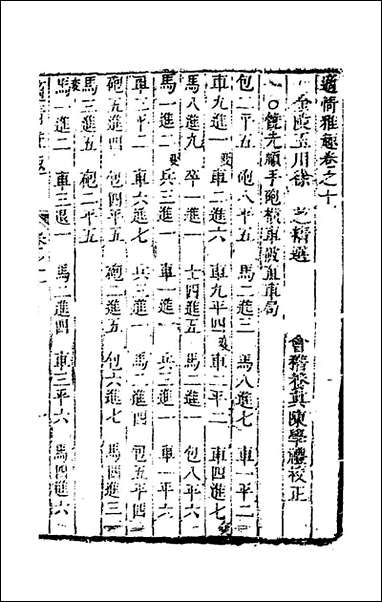 適情雅趣卷之十
金陵玉川徐 芝精選
會稽養真陳學禮校正
○饒先順手砲橫車破直車局
包二平五 砲八平五 馬二進三 馬八進七 車一平二
車九進一 車二進六 車九平四 車二平二 車四進七
馬八進九 卒一進一 士四進五 馬二進一 包八平六
馬一進二 兵三進一 車一進一 兵三進一 車一平六
車二平二 車四六七 兵三進一 馬二進四 包五平四
砲五進四 包四平六 砲二進五 包六進七 馬四進三
馬三進五 砲二平五
馬一進二 車三退一 馬二進四 車三平六 馬四進六